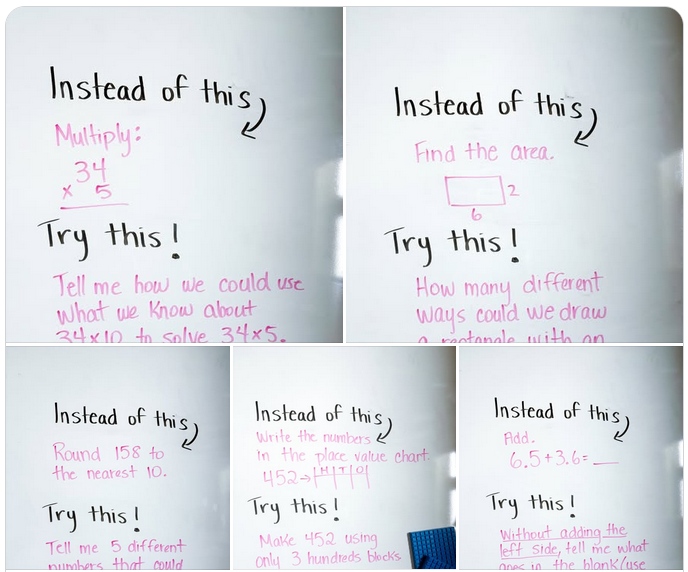 Instead of this
Multiply:
34
x 5
Try this!
Tell me how we could use
what we know about
34x10 to solve 34x5.
Instead of this
Find the area.
2
6
Try this!
How many different
ways could we draw
a rectangle with an
Instead of this
Round 158 to
the nearest 10.
Try this!
Tell me 5 different
numbers that could
Instead of this
Write the numbers
in the place value chart.
452→ H T O
Try this!
Make 452 using
only 3 hundreds blocks
Instead of this
Add.
6.5+3.6= __
Try this!
Without adding the
left side, tell me what
goes in the blank/use